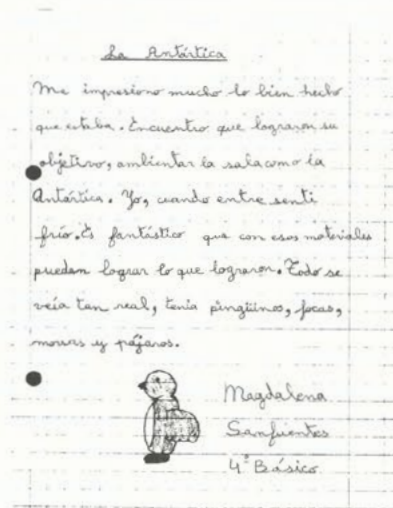 La Antártica
Me impresiono mucho lo bien hecho
que estaba. Encuentro que lograron su
objetivo, ambientar la sala como la
Antártica. Yo, cuando entre sentí
frío. Es fantástico que con esos materiales
puedan lograr lo que lograron. Todo se
veía tan real, tenía pingüinos, focas,
morsas y pájaros.
Magdalena
Sanfuentes
4° Básico